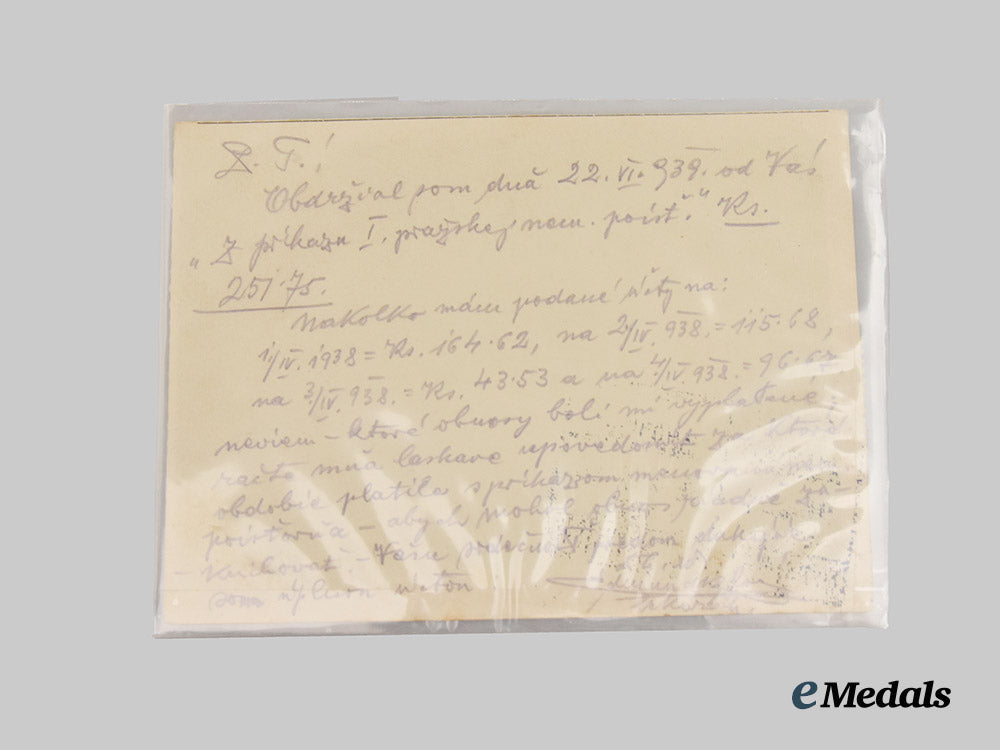 P. T.!
Obdržial som dňa 22. VI. 939. od Vás
"Z príkazu I. pražskej nem. poist." Ks.
251·75.
Nakolko mám podané účty na:
1/IV. 1938 = Ks. 164·62, na 2/IV. 938. = 115·68,
na 3/IV. 938. = Ks. 43·53 a na 4/IV. 938. = 96·67
neviem – ktoré obnosy boli mi vyplatené,
ráčte mňa láskave upovedomiť za ktoré
obdobie platila s príkazom
– abych mohol obnos riadne
som
eMedals